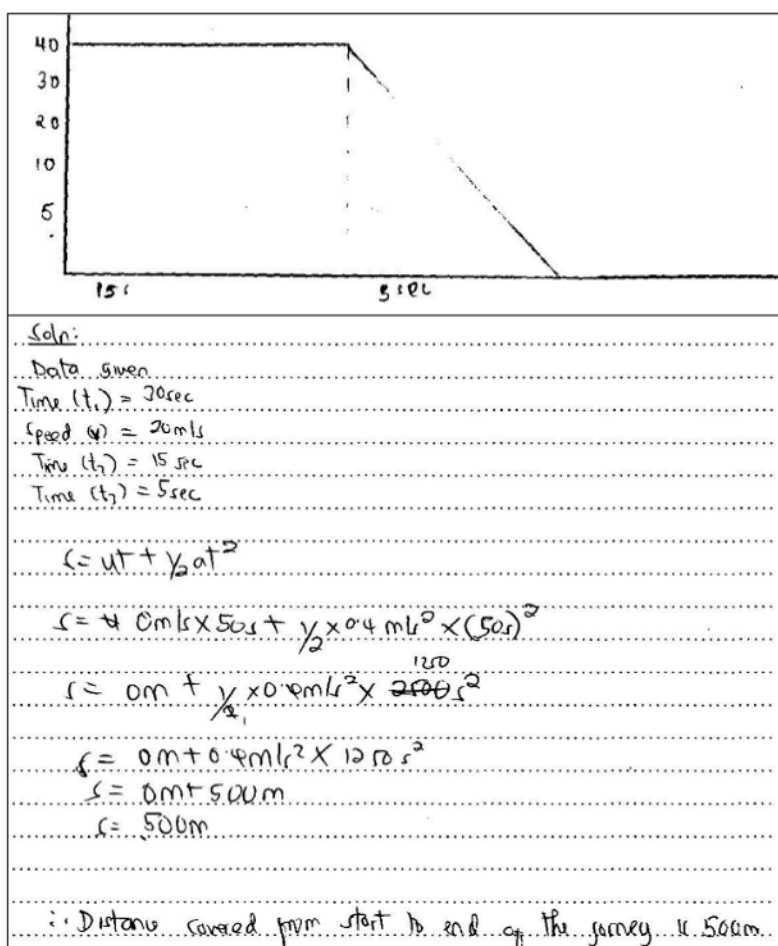 40
30
20
10
5
15s 5 sec
Soln:
Data given
Time (t₁) = 30sec
Speed (v) = 20m/s
Time (t₂) = 15 sec
Time (t₃) = 5sec
s = ut + 1/2 at²
s = 0m/s × 50s + 1/2 × 0.4 m/s² × (50s)²
1250
s = 0m + 1/2 × 0.4m/s² × 2500 s²
1
s = 0m + 0.4m/s² × 1250 s²
s = 0m + 500m
s = 500m
∴ Distance covered from start to end of the jorney is 500m